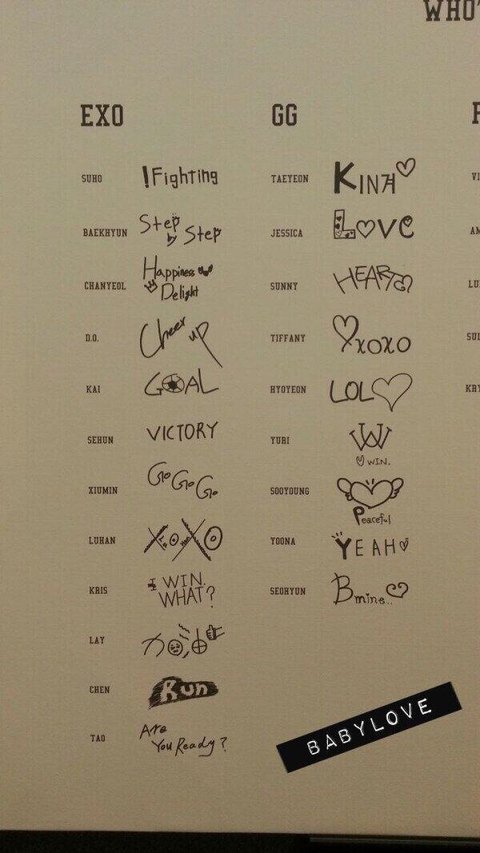 WHO'
EXO
GG
SUHO !Fighting
BAEKHYUN Step by Step
CHANYEOL Happiness Delight
D.O. Cheer up
KAI GOAL
SEHUN VICTORY
XIUMIN Go Go Go
LUHAN
KRIS I WIN. WHAT?
LAY
CHEN Run
TAO Are You Ready?
TAEYEON KINA
JESSICA LOVE
SUNNY HEART
TIFFANY xoxo
HYOYEON LOL
YURI W WIN.
SOOYOUNG Peaceful
YOONA YEAH
SEOHYUN B mine..
BABYLOVE